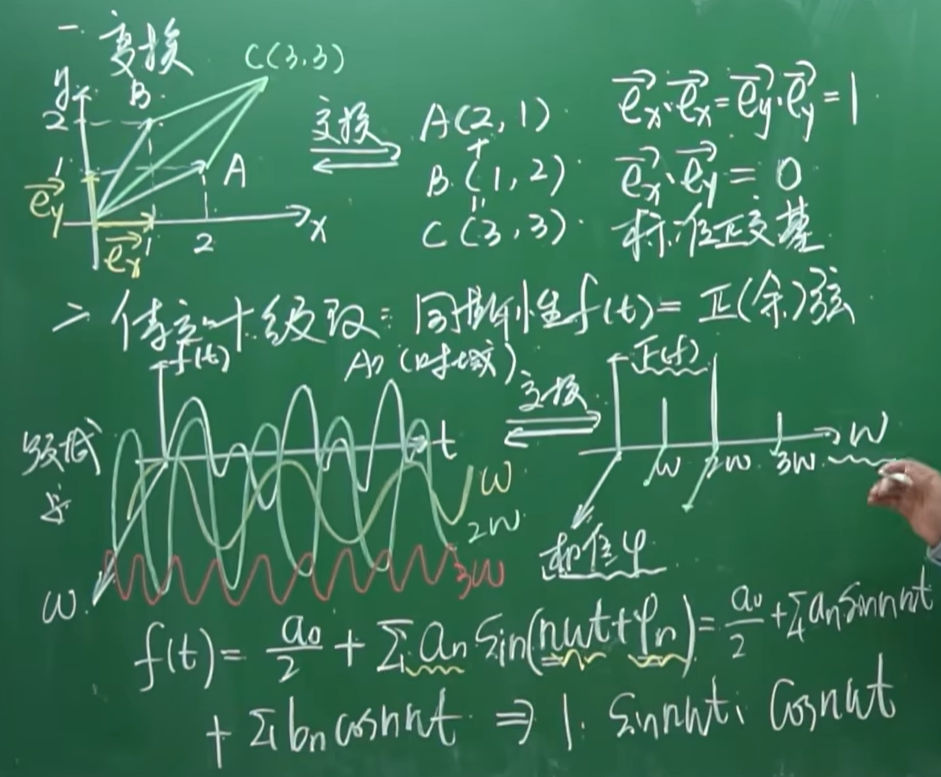 一 变换
C(3,3)
y
B
2
1
A
e⃗y
e⃗x
1
2
x
变换
A(2,1)
+
B(1,2)
=
C(3,3)
e⃗x·e⃗x=e⃗y·e⃗y=1
e⃗x·e⃗y=0
标准正交基
二 傅立叶级数: 周期性f(t)=正(余)弦
f(t)
A) (时域)
t
w
2w
3w
w
变换
F(f)
w
2w
3w
W
相位φ
f(t)= a0/2 + Σ an Sin(nwt+φn)= a0/2 +Σ an Sinnwt
+ Σ bn cosnwt ⇒ 1. Sinnwt、 Cosnwt